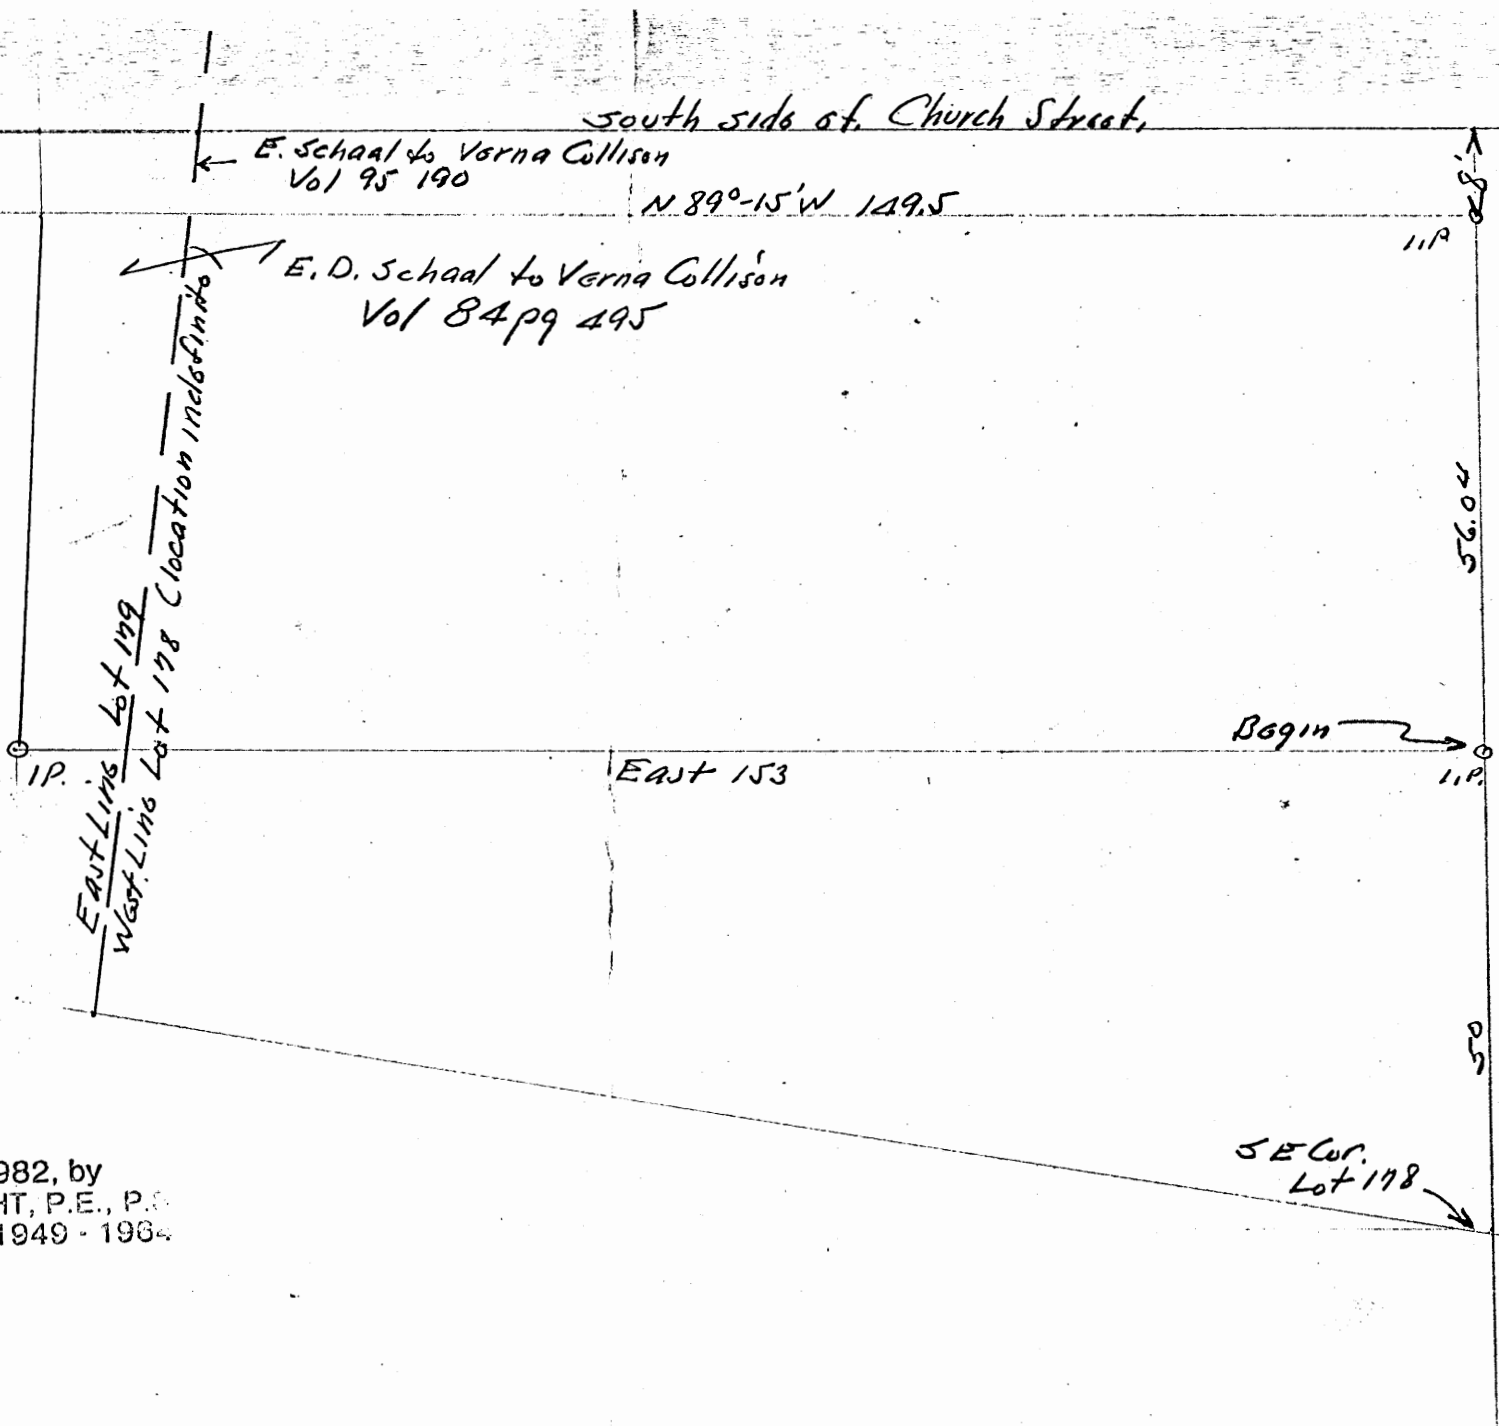 South side of. Church Street,
E. Schaal to Verna Collison
Vol 95 190
8'
N 89°-15'W 149.5
I.P.
E.D. Schaal to Verna Collison
Vol 84 pg 495
56.04
East Line Lot 179
West Line Lot 178 (location indefinite)
Begin
I.P.
East 153
I.P.
50
S E Cor.
Lot 178
982, by
HT, P.E., P.S.
1949 - 1964